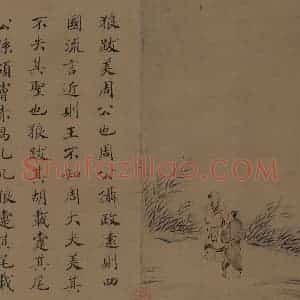 狼跋美周公也周公攝政遠則四
國流言近則王不知周大夫美其
不失其聖也狼跋其胡載疐其尾
公孫碩膚赤舄几几狼疐其尾載
Shufaziliao.com